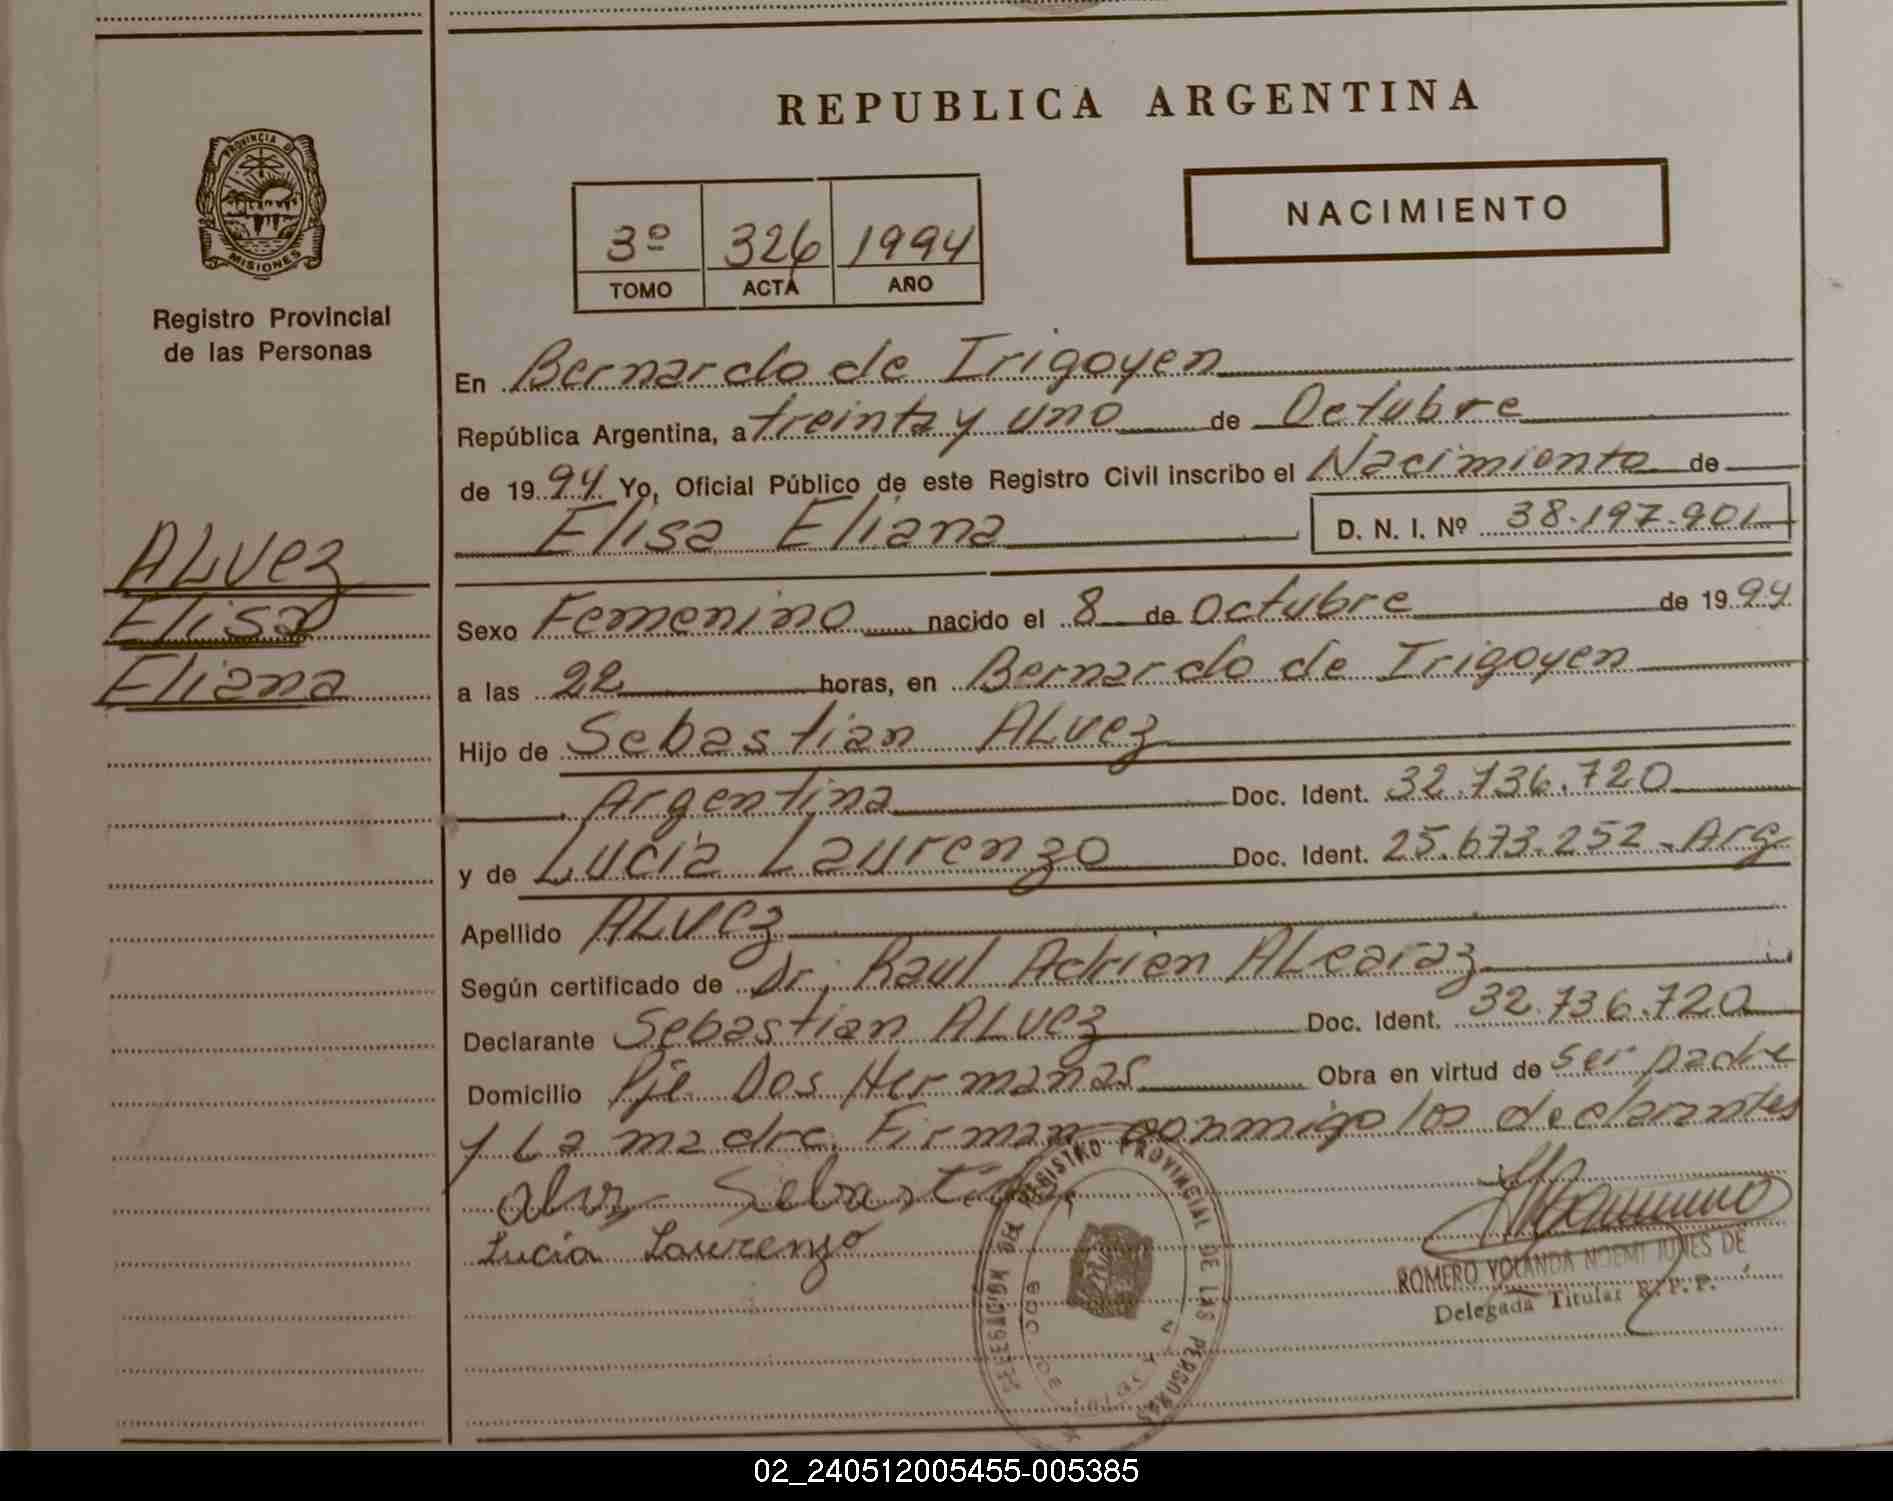 REPUBLICA ARGENTINA
PROVINCIA DE
MISIONES
Registro Provincial
de las Personas
3º 326 1994
TOMO ACTA AÑO
NACIMIENTO
En Bernardo de Irigoyen
República Argentina, a treinta y uno de Octubre
de 1994 Yo, Oficial Público de este Registro Civil inscribo el Nacimiento de
Elisa Eliana D. N. I. Nº 38.197.901
ALvez
Elisa
Eliana
Sexo Femenino nacido el 8 de Octubre de 1994
a las 22 horas, en Bernardo de Irigoyen
Hijo de Sebastian ALvez
Argentina Doc. Ident. 32.736.720
y de Lucia Laurenzo Doc. Ident. 25.673.252 - Arg
Apellido ALvez
Según certificado de Dr. Raul Adrien ALcaraz
Declarante Sebastian ALvez Doc. Ident. 32.736.720
Domicilio Pje Dos Hermanas Obra en virtud de ser padre
y La madre. Firman conmigo los declarantes
Sebast
Lucia Laurenzo
REGISTRO PROVINCIAL DE LAS PERSONAS
ROMERO YOLANDA NOEMI JUNES DE
Delegada Titular R.P.P.
02_240512005455-005385